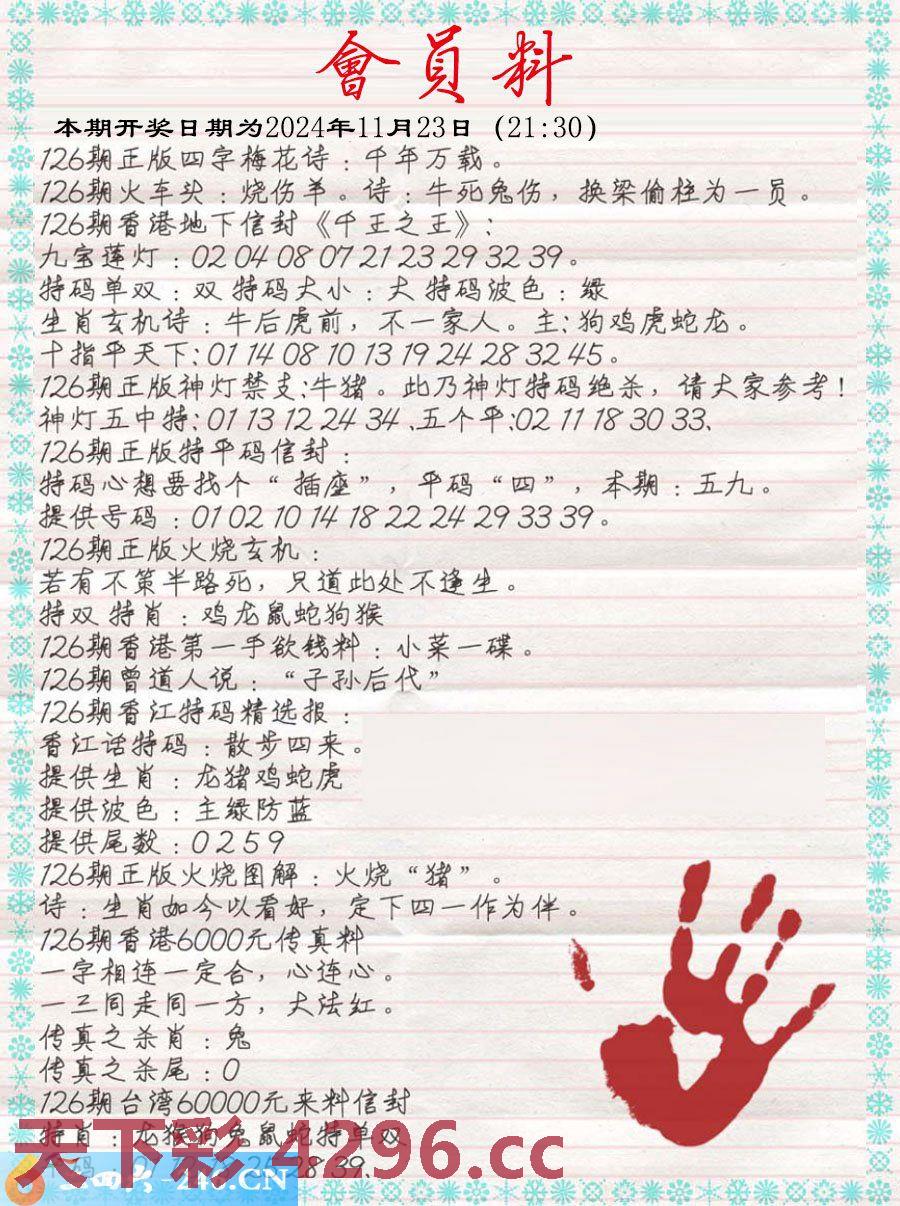 會員料
本期开奖日期为2024年11月23日 (21:30)
126期正版四字梅花诗:千年万载。
126期火车头:烧伤羊。诗:牛死兔伤,换梁偷柱为一员。
126期香港地下信封《千王之王》:
九宝莲灯:02 04 08 07 21 23 29 32 39。
特码单双:双 特码大小:大 特码波色:绿
生肖玄机诗:牛后虎前,不一家人。主:狗鸡虎蛇龙。
十指平天下:01 14 08 10 13 19 24 28 32 45。
126期正版神灯禁支:牛猪。此乃神灯特码绝杀,请大家参考!
神灯五中特:01 13 12 24 34 .五个平:02 11 18 30 33.
126期正版特平码信封:
特码心想要找个“插座”,平码“四”,本期:五九。
提供号码:01 02 10 14 18 22 24 29 33 39。
126期正版火烧玄机:
若有不策半路死,只道此处不逢生。
特双 特肖:鸡龙鼠蛇狗猴
126期香港第一手欲钱料:小菜一碟。
126期曾道人说:“子孙后代”
126期香江特码精选报:
香江话特码:散步四来。
提供生肖:龙猪鸡蛇虎
提供波色:主绿防蓝
提供尾数:0 2 5 9
126期正版火烧图解:火烧“猪”。
诗:生肖如今以看好,定下四一作为伴。
126期香港6000元传真料
一字相连一定合,心连心。
一二同走同一方,大法红。
传真之杀肖:兔
传真之杀尾:0
126期台湾60000元来料信封
特肖:龙猴狗兔鼠蛇特单双
28 39.
天下彩.4296.cc
246.CN